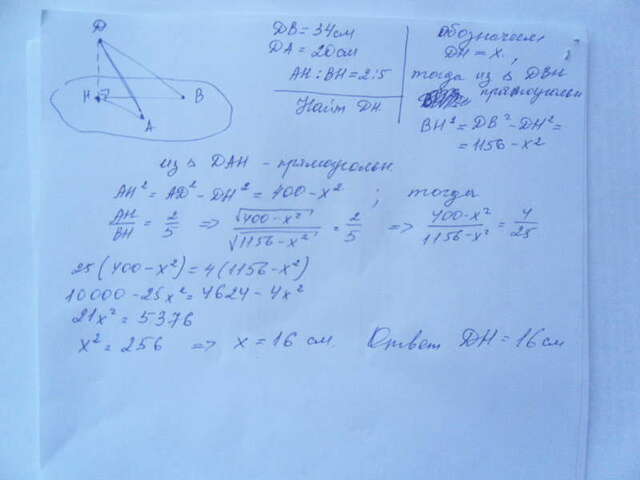 D
H
B
A
DB = 34 см
DA = 20 см
AH : BH = 2:5
Найти DH
Обозначем
DH = x,
тогда из △ DBH
прямоугольн
BH² = DB² - DH² =
= 1156 - x²
из △ DAH - прямоугольн.
AH² = AD² - DH² = 400 - x² ; тогда
AH/BH = 2/5 => √(400 - x²)/√(1156 - x²) = 2/5 => (400 - x²)/(1156 - x²) = 4/25
25(400 - x²) = 4(1156 - x²)
10000 - 25x² = 4624 - 4x²
21x² = 5376
x² = 256 => x = 16 см. Ответ DH = 16 см